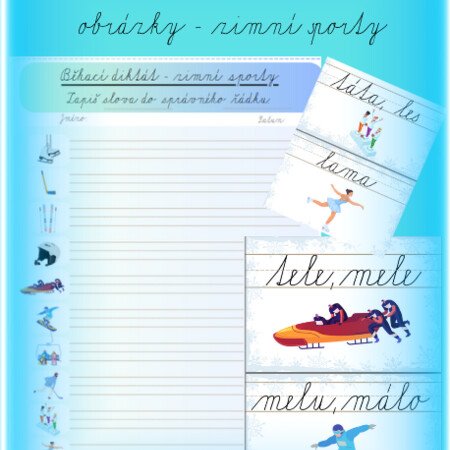 obrázky - zimní sporty
Běhací diktát - zimní sporty
Zapiš slova do správného řádku
Jméno: Datum:
táta, les
lama
tele, mele
melu, málo